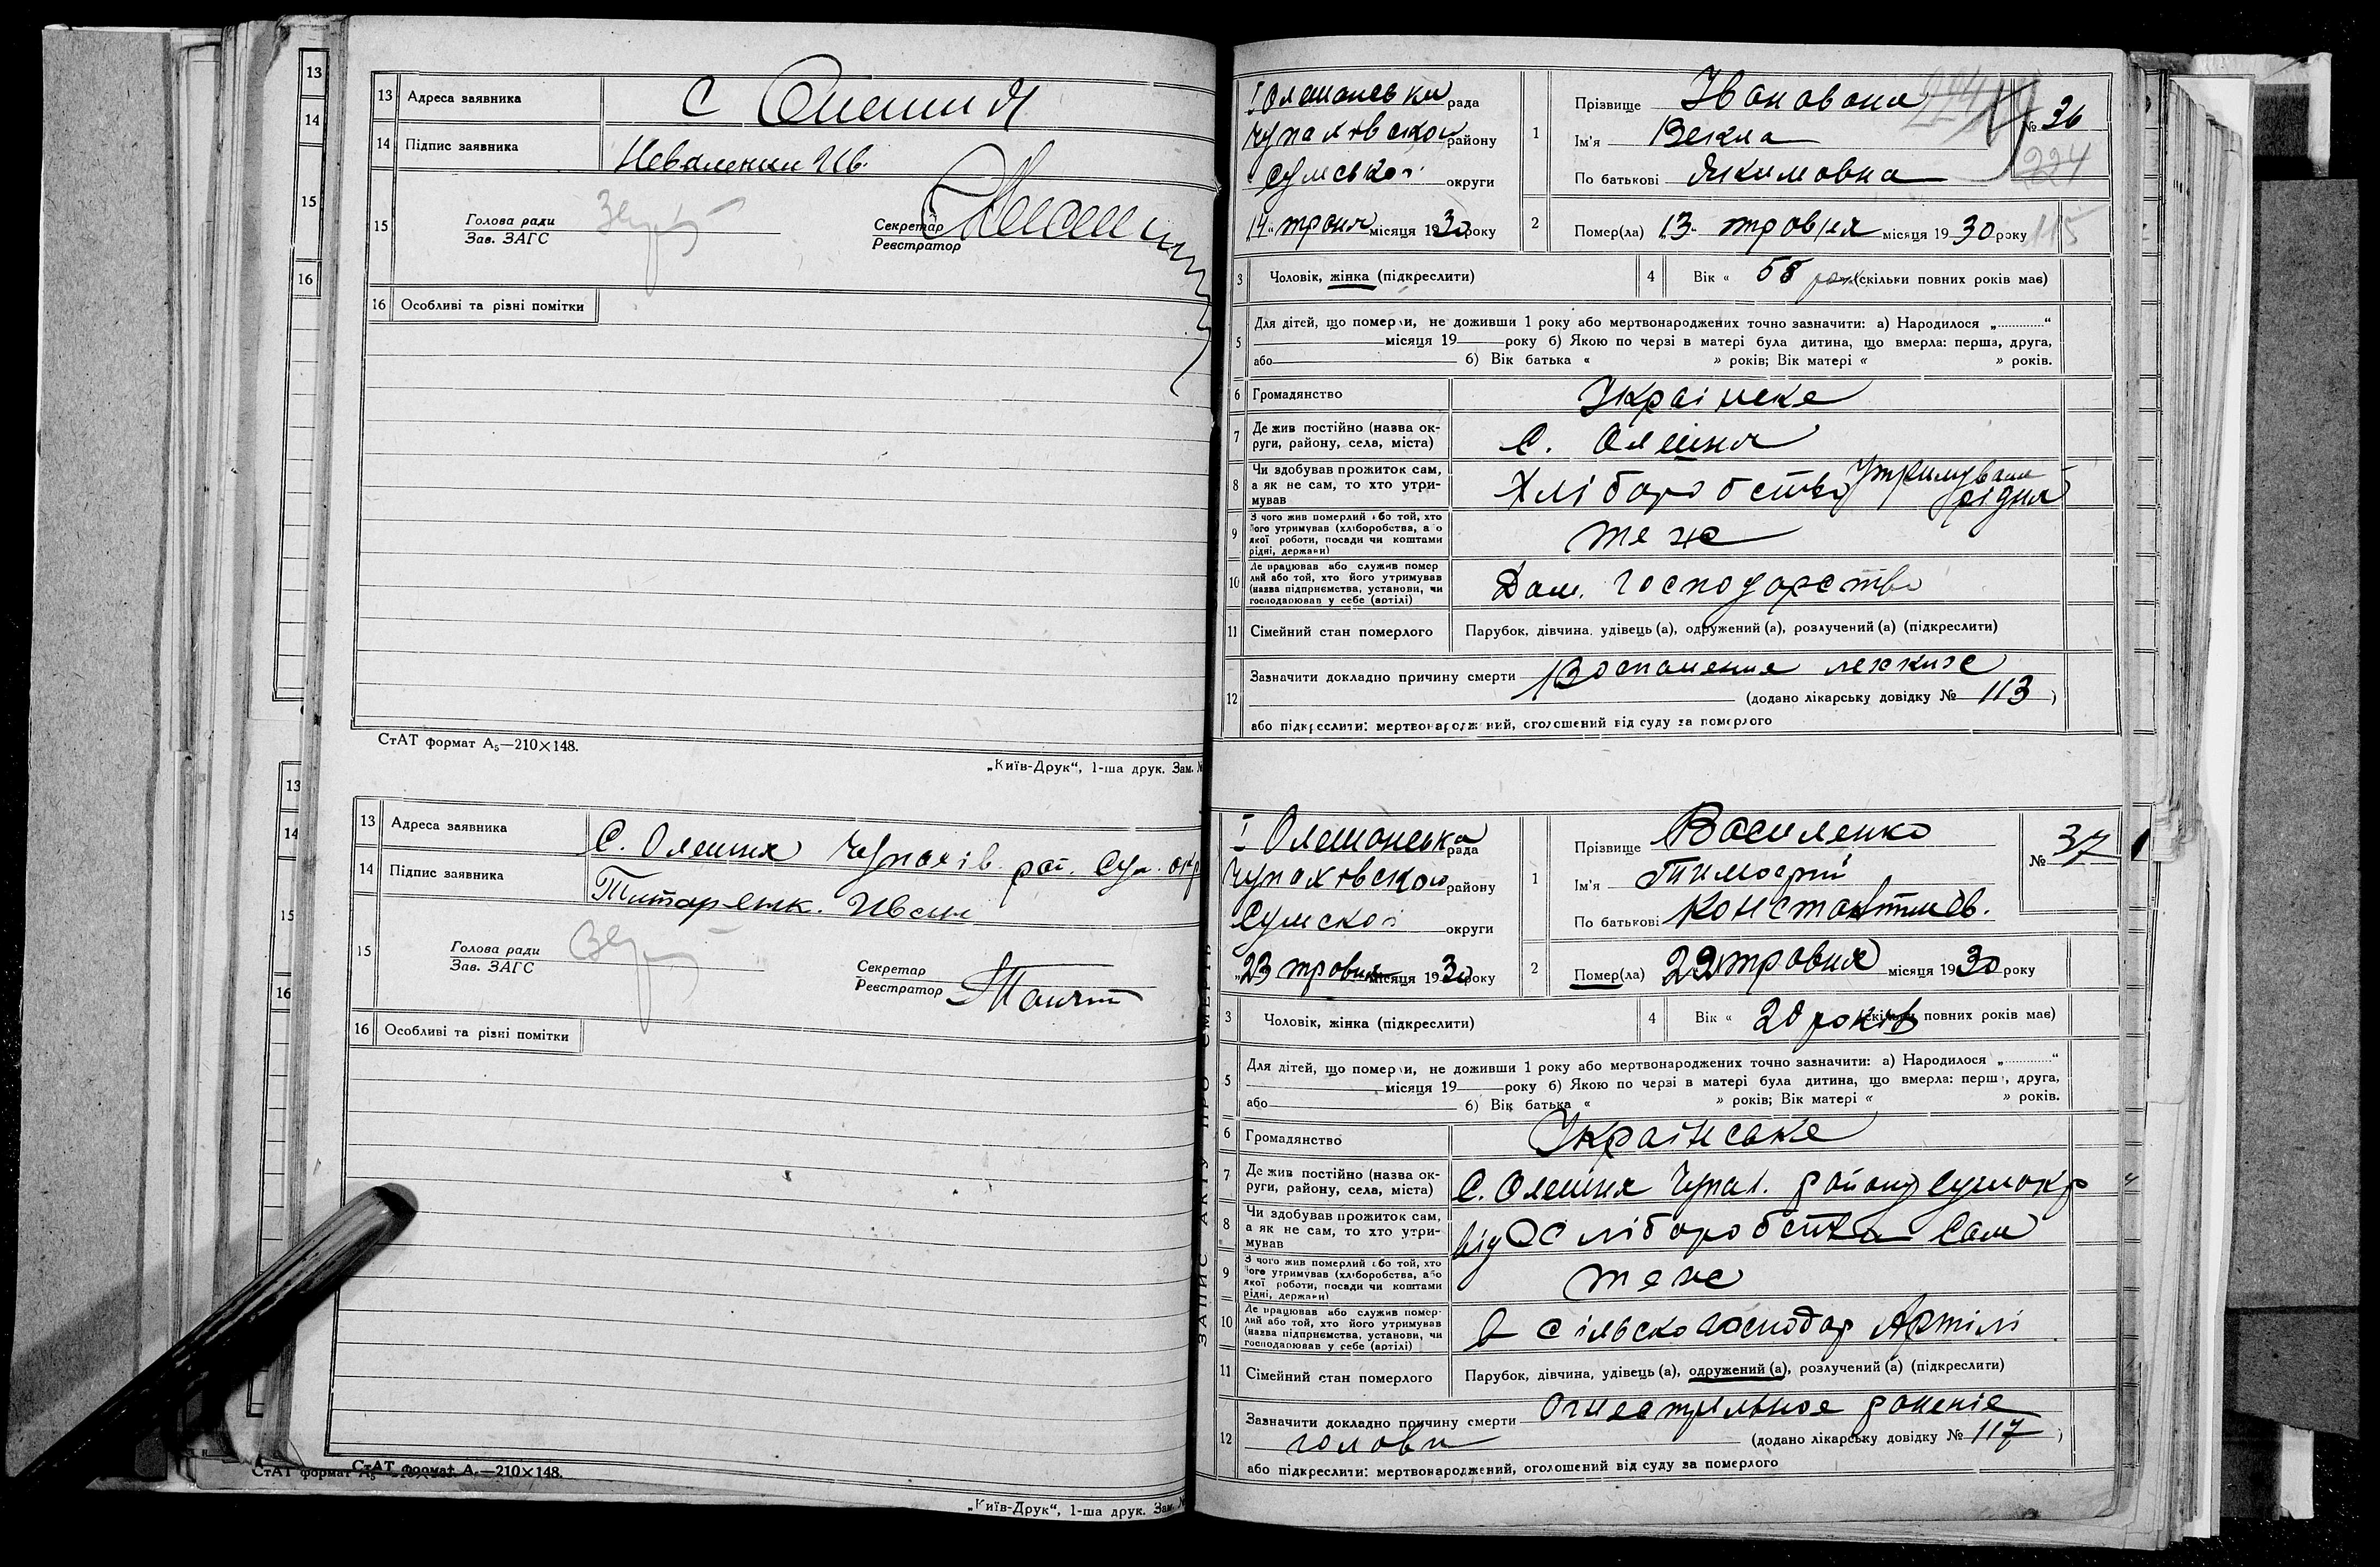 13 Адреса заявника с Олешня
14 Підпис заявника Ив.
15 Голова ради
Зав. ЗАГС
Секретар
Реєстратор
16 Особливі та різні помітки
СтАТ формат А5—210×148.
„Київ-Друк“, 1-ша друк. Зам. №
13 Адреса заявника С. Олешня Чупахів. рай. Сум. окр
14 Підпис заявника Титаренк. Иван
15 Голова ради
Зав. ЗАГС
Секретар
Реєстратор
16 Особливі та різні помітки
СтАТ формат А5—210×148.
„Київ-Друк“, 1-ша друк. Зам. №
13
14
15
16
13
14
15
16
СтАТ формат А5
ЗАПИС АКТУ ПРО СМЕРТЬ
І рада
Чупахівскои району
Сумської округи
„14“ травня місяця 1930 року
1 Прізвище
Ім'я Векла
По батькові Якимовна
№ 36
224
224
2 Помер(ла) „13“ травня місяця 1930 року
115
3 Чоловік, жінка (підкреслити)
4 Вік « (скільки повних років має)
5 Для дітей, що померли, не доживши 1 року або мертвонароджених точно зазначити: а) Народилося „.............“
місяця 19 року б) Якою по черзі в матері була дитина, що вмерла: перша, друга,
або б) Вік батька « » років; Вік матері « » років.
6 Громадянство Українске
7 Де жив постійно (назва округи, району, села, міста) С. Олешня
8 Чи здобував прожиток сам, а як не сам, то хто утримував Хліборобство утримувала рідня
9 З чого жив померлий або той, хто його утримував (хліборобства, або якої роботи, посади чи коштами рідні, держави) теж
10 Де працював або служив померлий або той, хто його утримував (назва підприємства, установи, чи господарював у себе (артілі) Дом. господарство
11 Сімейний стан померлого Парубок, дівчина, удівець (а), одружений (а), розлучений (а) (підкреслити)
12 Зазначити докладно причину смерти Воспаление легких
(додано лікарську довідку № 113 )
або підкреслити: мертвонароджений, оголошений від суду за померлого
І Олешанська рада
Чупахівскои району
Сумскої округи
„23 травня місяця 1930 року
1 Прізвище Василенко
Ім'я Тимофій
По батькові Константинов.
№ 37
2 Помер(ла) 22 травня місяця 1930 року
3 Чоловік, жінка (підкреслити)
4 Вік « років (скільки повних років має)
5 Для дітей, що померли, не доживши 1 року або мертвонароджених точно зазначити: а) Народилося „.............“
місяця 19 року б) Якою по черзі в матері була дитина, що вмерла: перша, друга,
або б) Вік батька « » років; Вік матері « » років.
6 Громадянство Українське
7 Де жив постійно (назва округи, району, села, міста) С. Олешня Чупах. району Сумокр
8 Чи здобував прожиток сам, а як не сам, то хто утримував від Хліборобства Сам
9 З чого жив померлий або той, хто його утримував (хліборобства, або якої роботи, посади чи коштами рідні, держави) теж
10 Де працював або служив померлий або той, хто його утримував (назва підприємства, установи, чи господарював у себе (артілі) в Сільскогосподар Артілі
11 Сімейний стан померлого Парубок, дівчина, удівець (а), одружений (а), розлучений (а) (підкреслити)
12 Зазначити докладно причину смерти Огнестрильное раненіе
голови (додано лікарську довідку № 117 )
або підкреслити: мертвонароджений, оголошений від суду за померлого